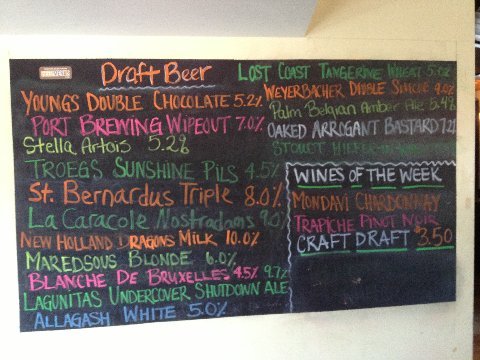 Draft Beer
YOUNGS DOUBLE CHOCOLATE 5.2%
PORT BREWING WIPEOUT 7.0%
Stella Artois 5.2%
TROEGS SUNSHINE PILS 4.5%
ST. BERNARDUS TRIPLE 8.0%
La Caracole Nostradams 9.0%
NEW HOLLAND DRAGONS MILK 10.0%
MAREDSOUS BLONDE 6.0%
BLANCHE DE BRUXELLES 4.5%
LAGUNITAS UNDERCOVER SHUTDOWN ALE 9.7%
ALLAGASH WHITE 5.0%
LOST COAST TANGERINE WHEAT
WEYERBACHER DOUBLE SIMCOE 9.0%
Palm Belgian Amber Ale 5.4%
OAKED ARROGANT BASTARD 7.2%
WINES OF THE WEEK
MONDAVI CHARDONNAY
TRAPICHE PINOT NOIR
CRAFT DRAFT $3.50